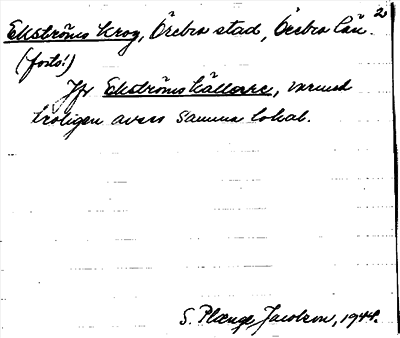 Ekströms krog, Örebro stad, Örebro län. 2
(forts.)
Jfr Ekströms källare, varmed
troligen avses samma lokal.
S. Plænge Jacobson, 1944.